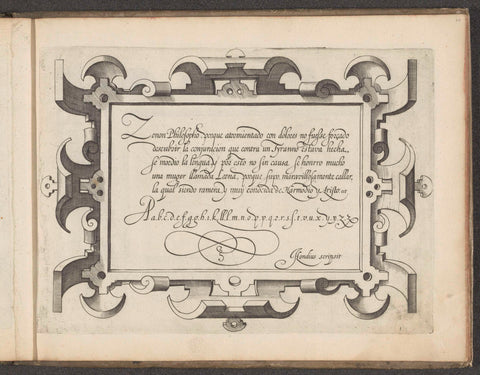 Zenon Philosopho, porque atormentado con dolores no fuesse forçado
descubrir la conjuracion que contra un Tyranno estava hecha,
se mordio la lengua: y por esto no sin causa se honrro mucho
una muger llamada Leena, porque supo maravillosamente callar,
la qual siendo ramera, y muy conocida de Harmodio y Aristo
A a b c d e f g g h i k l l m n o p p q r s s t v u x y z
Hondius scripsit